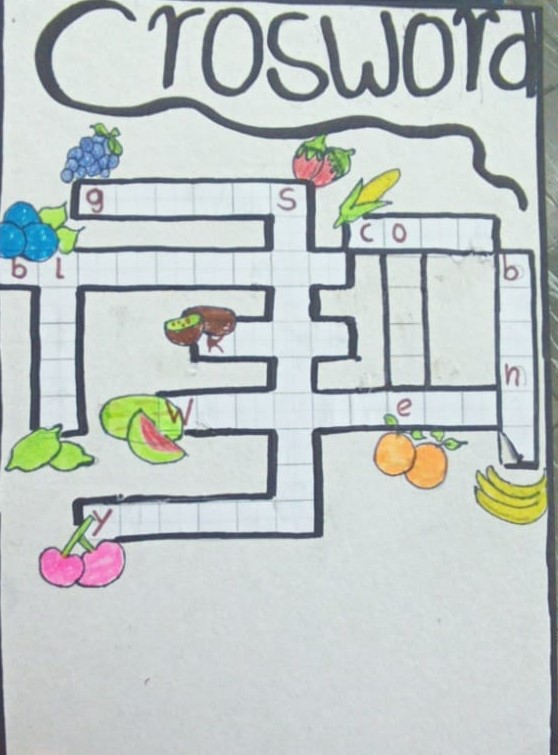 Crosword
g S
c o
b l b
k
n
w e
y